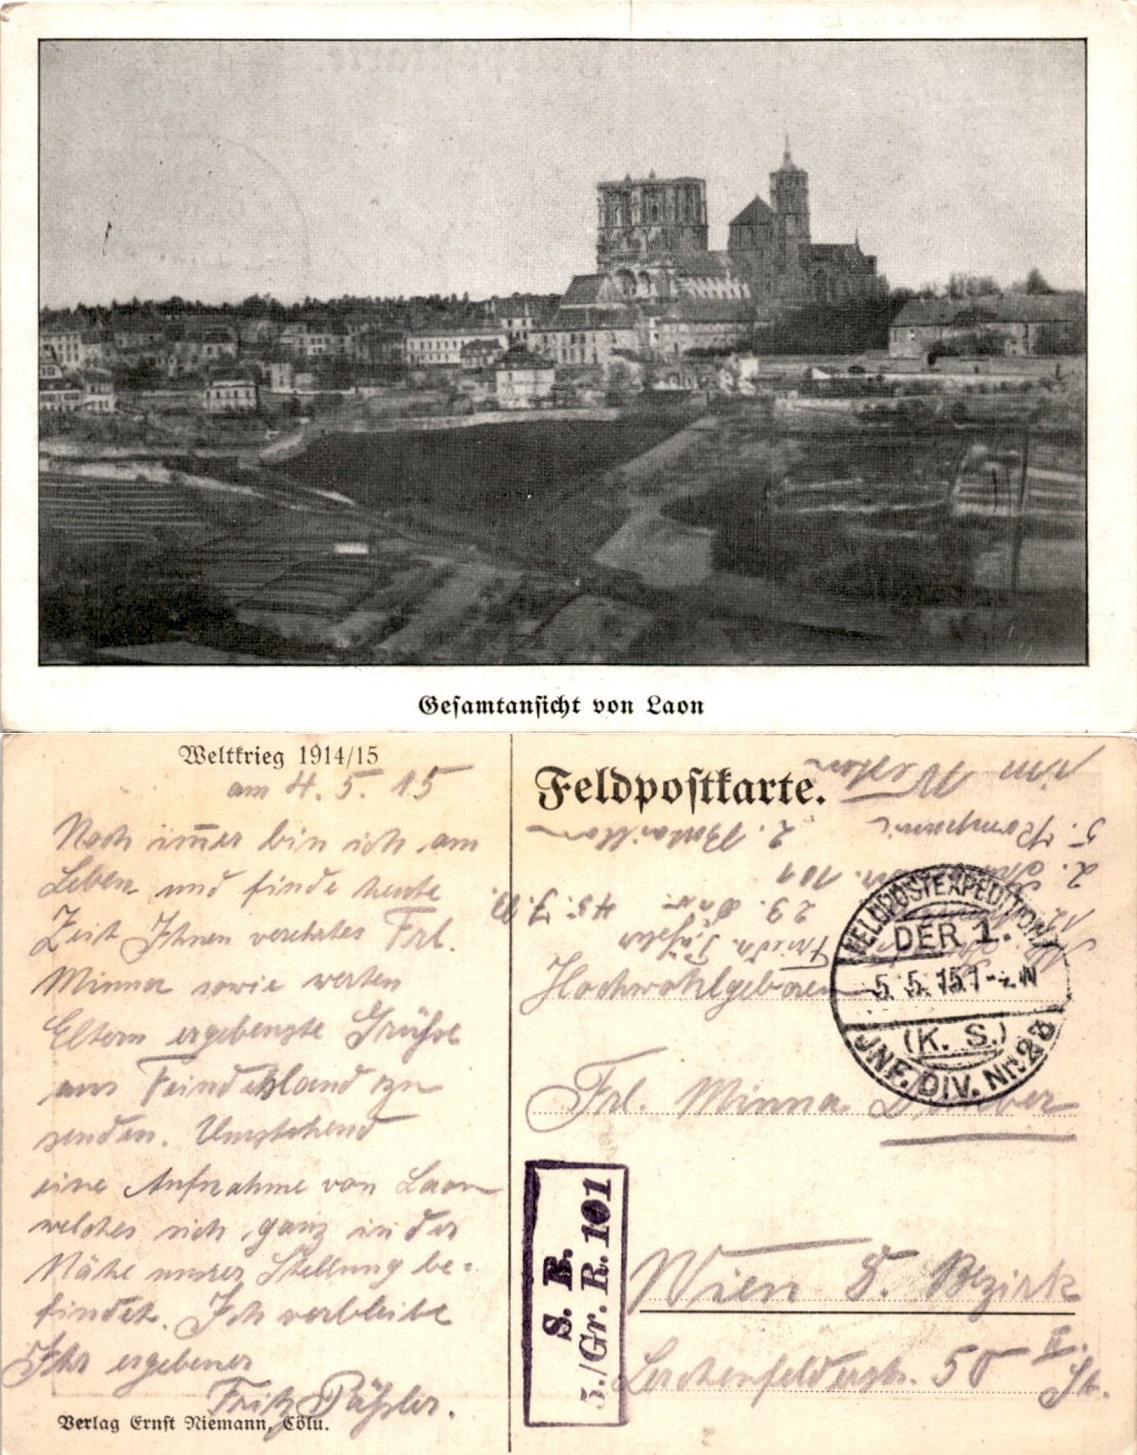 Gesamtansicht von Laon
Weltkrieg 1914/15
am 4. 5. 15
Noch im̅er bin ich am
Leben und finde heute
Zeit Ihnen verehrtes Frl.
Minna sowie werten
Eltern ergebenste Grüße
aus Feindesland zu
senden. Umstehend
eine Aufnahme von Laon
welches sich ganz in der
Nähe unsrer Stellung be-
findet. Ich verbleibe
Ihr ergebener
Fritz Päßler.
Verlag Ernst Niemann, Cöln.
Feldpostkarte.
5. Kompanie 2. Bataillon
101
23. 45. J. D.
Päßler
FELDPOSTEXPEDITION
DER 1.
5. 5. 15. 1-2 N
(K. S.)
INF. DIV. Nr. 23
Hochwohlgeboren
Frl. Minna
Wien 8. Bezirk
Lerchenfelderstr. 50 II. St.
S. B.
5./Gr. R. 101